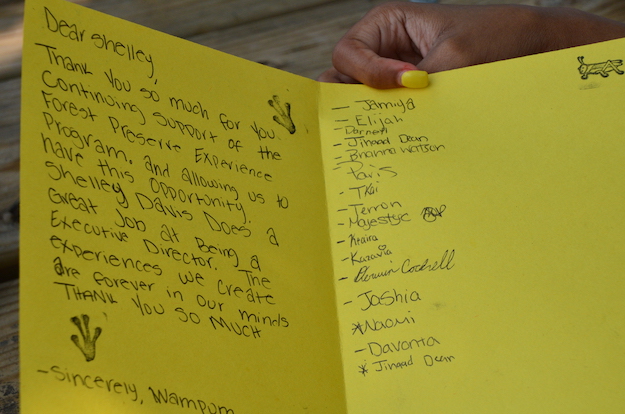 Dear Shelley,
Thank you so much for you
Continuing support of the
Forest Preserve Experience
Program. and allowing us to
have this opportunity.
Shelley Davis Does a
Great Job at Being a
Executive Director. The
experiences we create
are forever in our minds
THANK YOU SO MUCH
-Sincerely, Wampum
- Jamiya
- Elijah
- Jinaad Dean
- Brianna Watson
- Paris
- Tkai
- Terron
- Majestyc
- Keaira
- Kazaria
- Cockrell
- Jashia
*Naomi
- Davonta
* Jinaad Dean